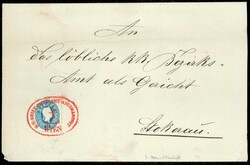 An
das löbliche KK Bezirks-
Amt als Gericht
Stokerau.